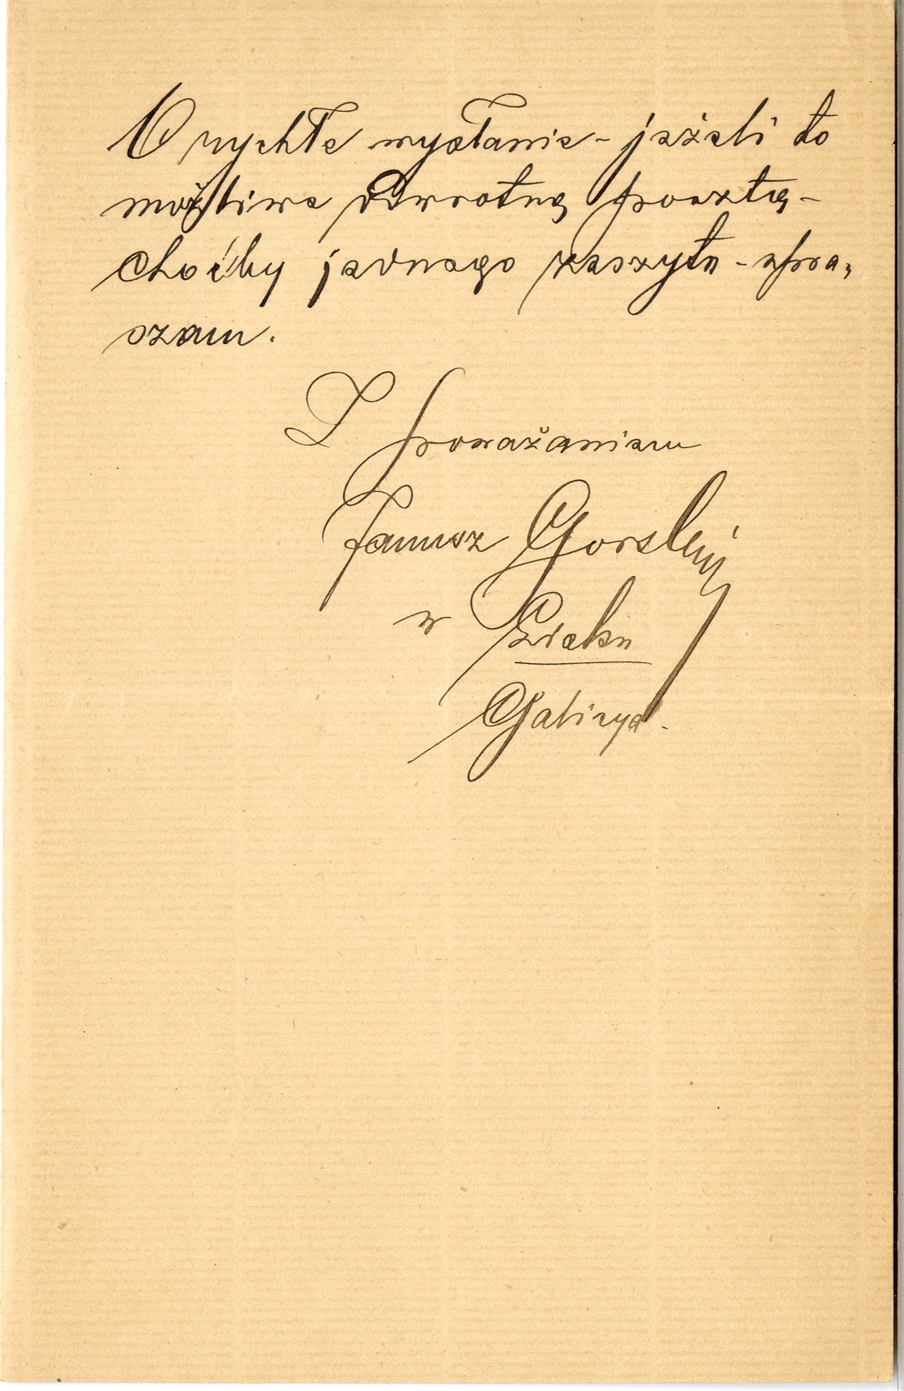 O rychłe wysłanie - jeżeli to
możliwe odwrotną pocztą -
choćby jednego zeszytu - upra„
szam.
Z poważaniem
Janusz Gorski
w
Galicya.